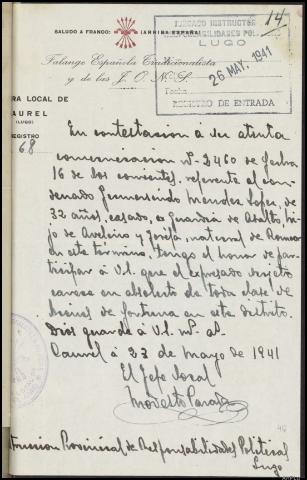 14
SALUDO A FRANCO: ¡ARRIBA ESPAÑA!
JUZGADO INSTRUCTOR
RESPONSABILIDADES POLITICAS
LUGO
26 MAY. 1941
Fecha
REGISTRO DE ENTRADA
Falange Española Tradicionalista
y de las J. O. N. S.
RA LOCAL DE
AUREL
(LUGO)
REGISTRO
68
En contestacion á su atenta
comunicacion nº 2460 de fecha
16 de los corrientes, referente al con-
denado Gumersindo Mendez Lopez, de
32 años, casado, ex Guardia de Asalto, hi-
jo de Avelino y Josefa, natural de Romeor
en este término, tengo el honor de par-
ticipar á V.S. que el expresado sujeto
carece en absoluto de toda clase de
bienes de fortuna en este distrito.
Dios guarde á V.S. mº aº
Caurel á 23 de Mayo de 1941
El Jefe local
Modesto Parada
omision Provincial de Responsabilidades Politicas
Lugo